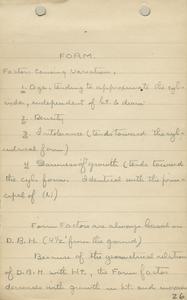 FORM.
Factors causing variation.
1. Age, tending to approximate the cyl-
inder, independent of ht. & diam
2. Density
3. Intolerance (tends toward the cyl-
indrical form)
4. Slowness of growth (tends toward
the cyl. form. Identical with the prin-
cipal of (1.)
Form Factors are always based on
D.B.H. (4½' from the ground)
Because of the geometrical relation
of D.B.H. with Ht., the Form factor
decreases with growth in ht. and
26